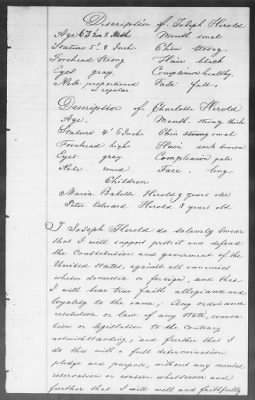 Discription of Joseph Herold
Age 63 Mouth small
Stature 5' 8 Inch Chin strong
Forehead Strong Hair black
Eyes gray Complexion healthy
Nose proportioned Face full
or regular
Discription of Charlotte Herold
Age. Mouth. strong thick
Stature 4' 6 Inch Chin small
Forehead high Hair dark brown
Eyes gray Complexion pale
Nose round Face. long
Children
Maria Babette Herold 9 years old
Peter Edward Herold 3 years old
I Joseph Herold do solemly swear
that I will support protect and defend
the Constitution and goverment of the
United States, against all enemies
wheter domestic or foreign, and that
I will bear true faith allegiance and
loyality to the same; Any ordinance
resolution or law of any State, conven
tion or legislation to the contrary
notwithstanding, and further that I
do this with a full determination
pledge and purpose, without any mental
reservation or evasion whatsoever and
further that I will well and faithfully